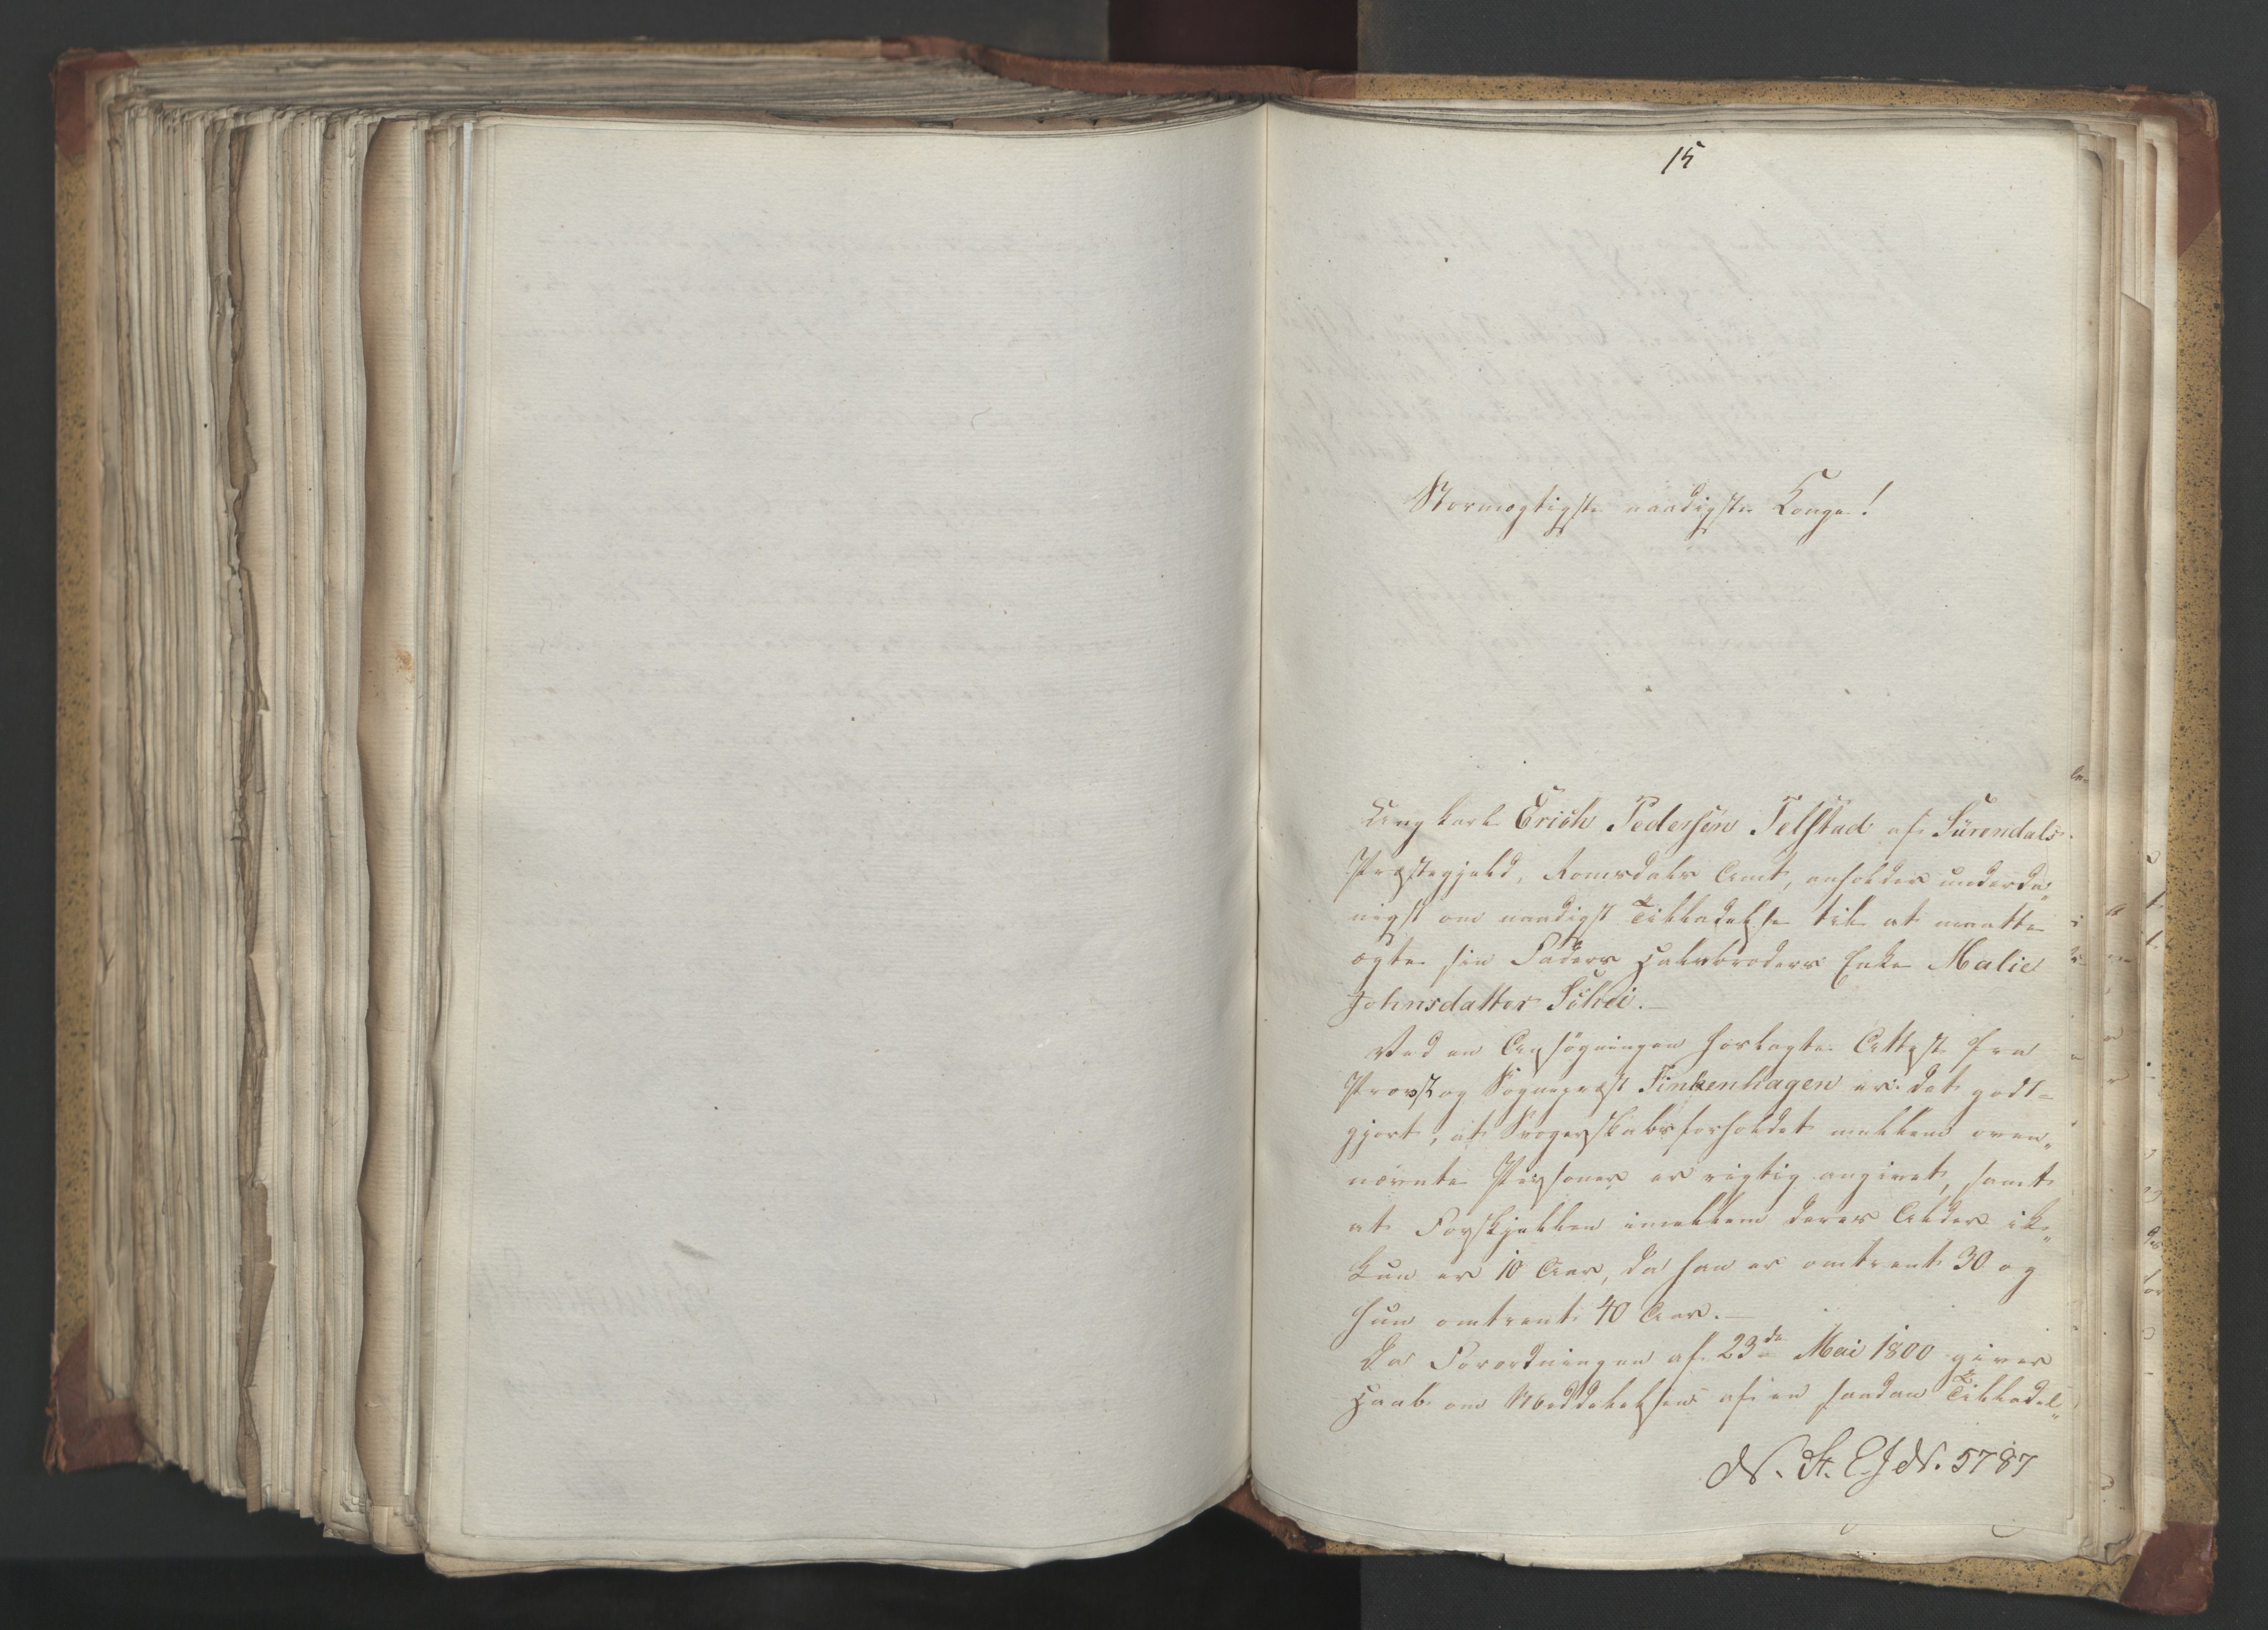 15
Stormægtigste naadigste Konge!
Ungkarl Erich Pedersen Telstad af Surendals
Præstegjeld, Romsdals Amt, anholder underda„
nigst om naadigst Tilladelse til at maatte
ægte sin Faders Halvbroders Enke Malie
Johnsdatter Schei.—
Ved en Ansøgningen forlagte Attest fra
Provst og Sognepræst Finkenhagen er det godt=
gjort, at Svogerskabsforholdet mellem oven„
nævnte Personer er rigtig angivet, samt
at Forskjellen imellem deres Alder ik„
kun er 10 Aar, da han er omtrent 30 og
hun omtrent 40 Aar.—
Da Forordningen af 23de Mai 1800 giver
Haab om Meddelelsen af en saadan Tillladel„
N. St. E. J N. 5787